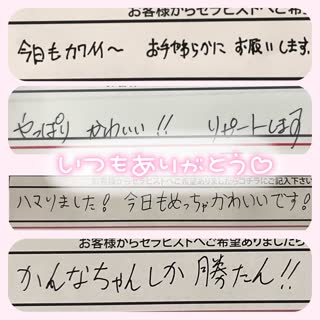 お客様からセラピストへご希
今日もカワイイ〜 お手やわらかに お願いします
やっぱり かわいい!! リピートします
いつもありがとう♡
お客様からセラピストへご希望ありましたらコチラにご記入下さい
ハマりました! 今日もめっちゃかわいいです!
お客様からセラピストへご希望ありましたら
かんなちゃんしか 勝たん!!